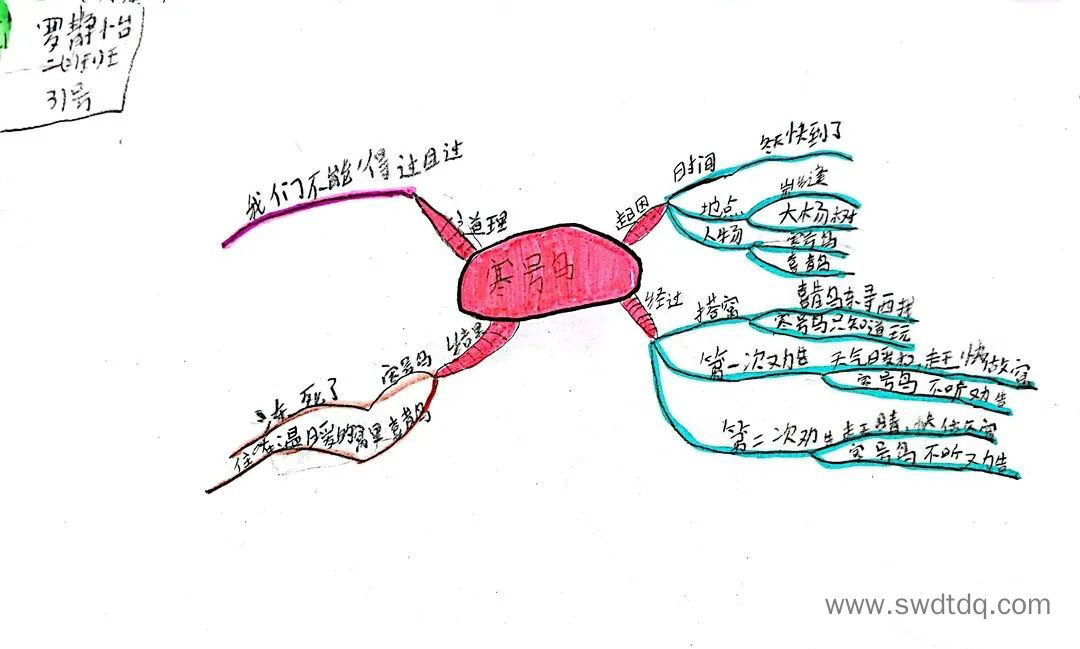 罗静怡
二(1)班
31号
寒号鸟
起因
时间
冬天快到了
地点
崖缝
大杨树
人物
寒号鸟
喜鹊
经过
搭窝
喜鹊东寻西找
寒号鸟只知道玩
第一次劝告
天气暖和,赶快做窝
寒号鸟不听劝告
第二次劝告
寒号鸟不听劝告
结果
寒号鸟
冻死了
喜鹊
住在温暖的窝里
道理
我们不能得过且过
www.swdtdq.com